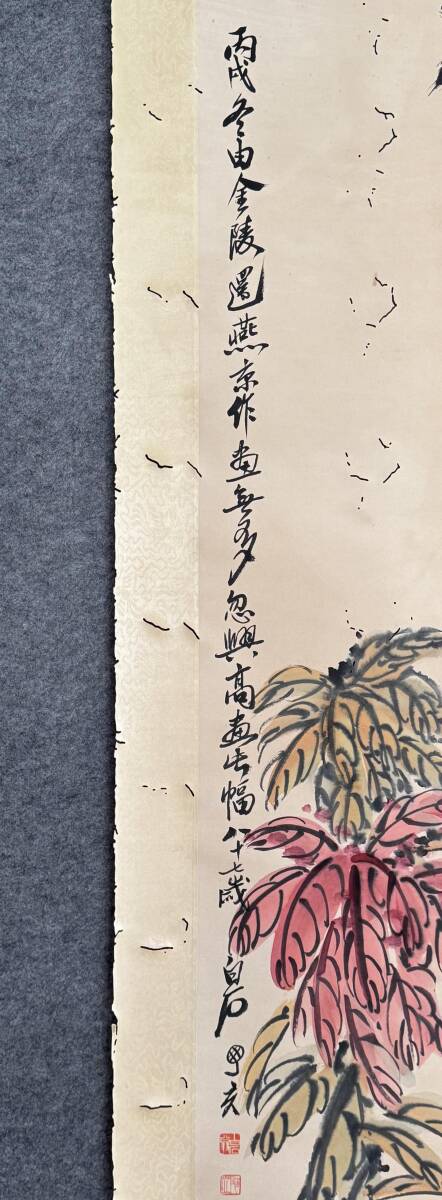 丙戌冬由金陵還燕京作畫無多忽興高畫此幅八十七歲白石